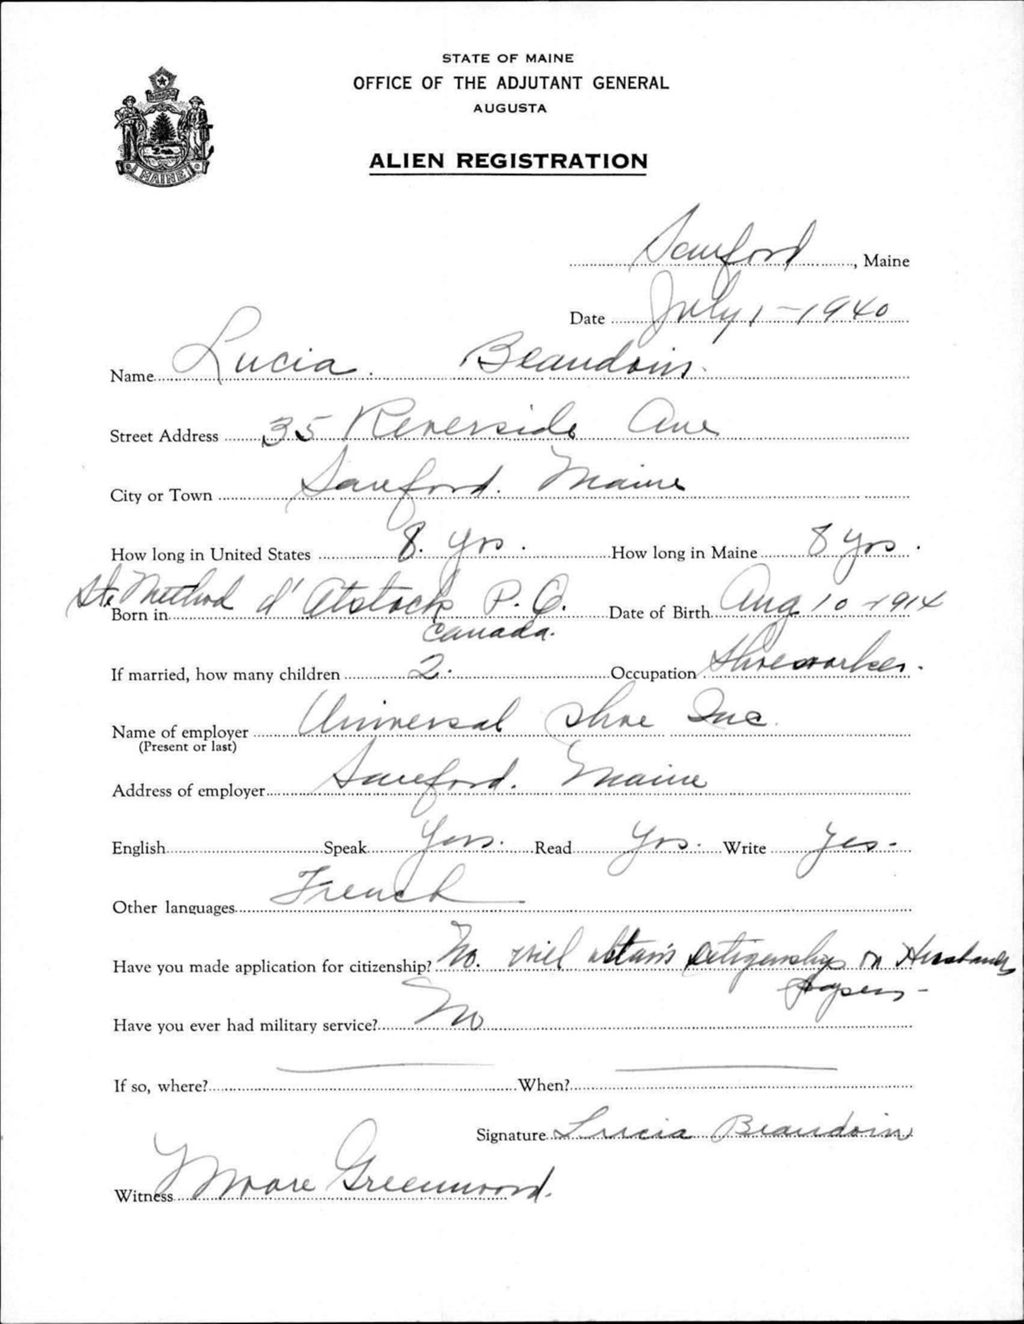 STATE OF MAINE
OFFICE OF THE ADJUTANT GENERAL
AUGUSTA
MAINE
ALIEN REGISTRATION
Sanford, Maine
Date July 1-1940
Name Lucia Beaudoin
Street Address 35 Reverside Ave
City or Town Sanford. Maine
How long in United States 8. yrs. How long in Maine 8 yrs.
Born in St. Method d'Atstock P.Q. Date of Birth Aug 10-1914
Canada.
If married, how many children 2. Occupation Shoeworker.
Name of employer Universal Shoe Inc.
(Present or last)
Address of employer Sanford. Maine
English Speak Yes. Read Yes. Write Yes-
Other languages French
Have you made application for citizenship? No. will attain citizenship on Husbands
papers-
Have you ever had military service? No
If so, where? When?
Signature Lucia Beaudoin
Witness Moore Greenwood.